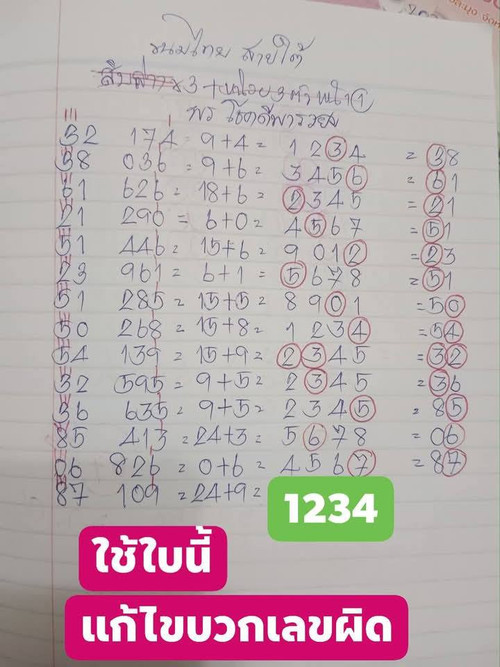 ขนมไทย สายใต้
สิบล่าง x 3 + หน่วย 3 ตัว หน้า 1
พร โชคดีพารวย
32 174 = 9+4 = 1234 = 38
38 036 = 9+6 = 3456 = 61
61 626 = 18+6 = 2345 = 21
21 290 = 6+0 = 4567 = 51
51 446 = 15+6 = 9012 = 23
23 961 = 6+1 = 5678 = 51
51 285 = 15+5 = 8901 = 50
50 268 = 15+8 = 1234 = 54
54 139 = 15+9 = 2345 = 32
32 595 = 9+5 = 2345 = 36
36 635 = 9+5 = 2345 = 85
85 413 = 24+3 = 5678 = 06
06 826 = 0+6 = 4567 = 87
87 109 = 24+9 = 1234
ใช้ใบนี้
แก้ไขบวกเลขผิด